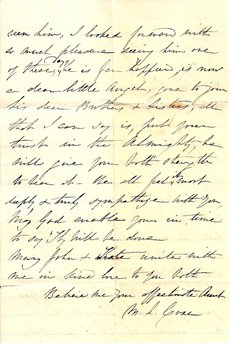 seen him, I looked forward with
so much pleasure seeing him one
of these days he is far happier is now
a dear little Angel, gone to join
his dear Brothers & Sisters, all
that I can say is, put your
trust in the Almighty, he
will give you both strength
to bear it - We all feel most
deeply & truly sympathise with you
May God enable you in time
to say Thy Will be done
Mary John & unite with
me in kind love to you both
Believe me your affectionate Aunt
M. L.